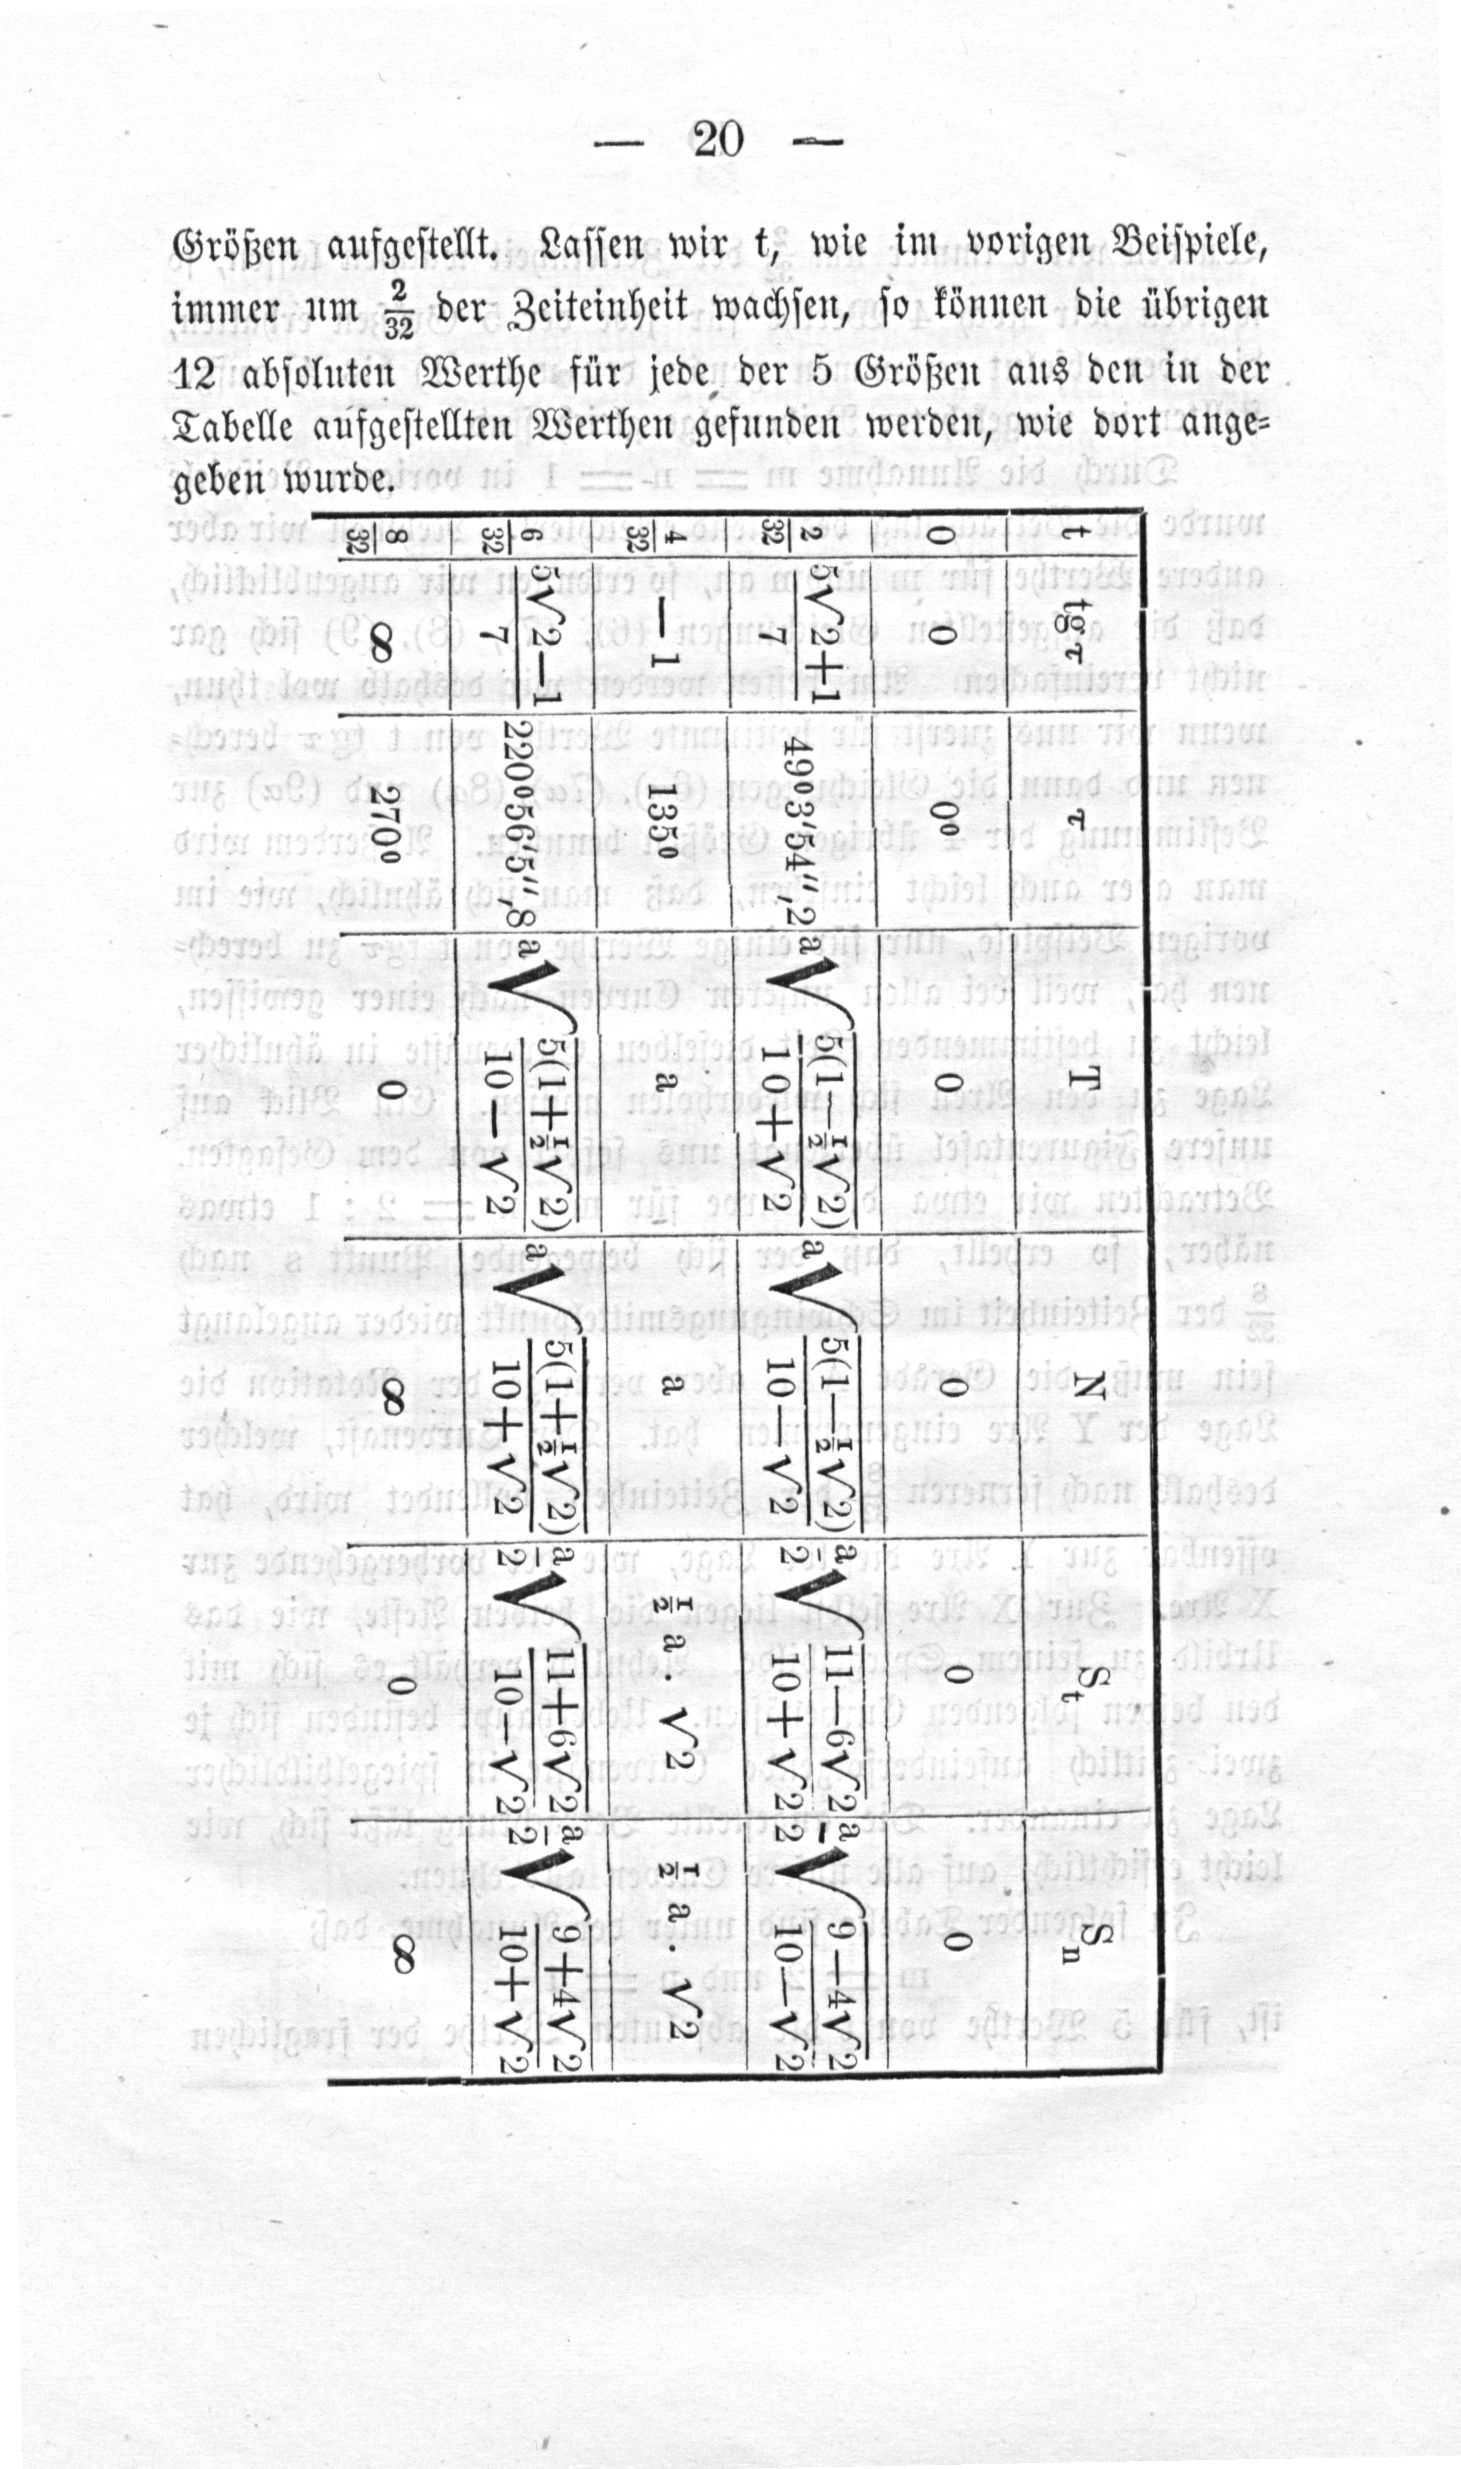 — 20 —
Größen aufgestellt. Lassen wir t, wie im vorigen Beispiele,
immer um 2/32 der Zeiteinheit wachsen, so können die übrigen
12 absoluten Werthe für jede der 5 Größen aus den in der
Tabelle aufgestellten Werthen gefunden werden, wie dort ange=
geben wurde.
t | tg τ | τ | T | N | S_t | S_n
0 | 0 | 0⁰ | 0 | 0 | 0 | 0
2/32 | (5√2+1)/7 | 49⁰3′54″,2 | a√(5(1−½√2)/(10+√2)) | a√(5(1−½√2)/(10−√2)) | a/2 √((11−6√2)/(10+√2)) | a/2 √((9−4√2)/(10−√2))
4/32 | −1 | 135⁰ | a | a | ½ a . √2 | ½ a . √2
6/32 | (5√2−1)/7 | 220⁰56′5″,8 | a√(5(1+½√2)/(10−√2)) | a√(5(1+½√2)/(10+√2)) | a/2 √((11+6√2)/(10−√2)) | a/2 √((9+4√2)/(10+√2))
8/32 | ∞ | 270⁰ | 0 | ∞ | 0 | ∞